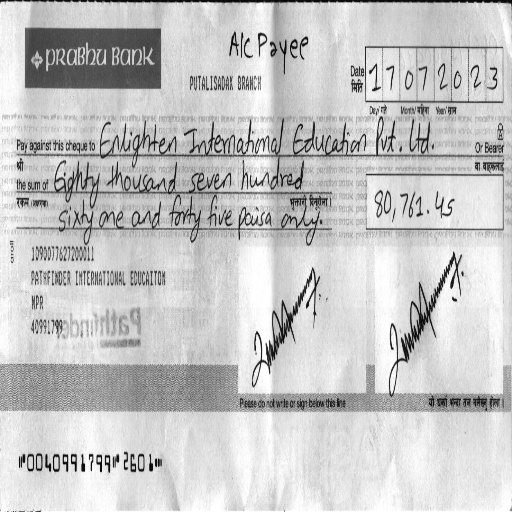 PRABHU BANK
A/C Payee
PUTALISADAK BRANCH
Date
मिति
17072023
Day/ गते Month/ महिना Year/ साल
Pay against this cheque to Enlighten International Education Pvt. Ltd. Or Bearer
श्री
वा वाहकलाई
the sum of Eighty thousand seven hundred
रकम (अक्षरुपी) भुक्तानी दिनुहोला ।
sixty one and forty five paisa only.
80,761.45
1090077627200011
PATHFINDER INTERNATIONAL EDUCAITON
NPR
40991799
Pathfinder
Please do not write or sign below this line
⑈0040991799⑈2601⑈